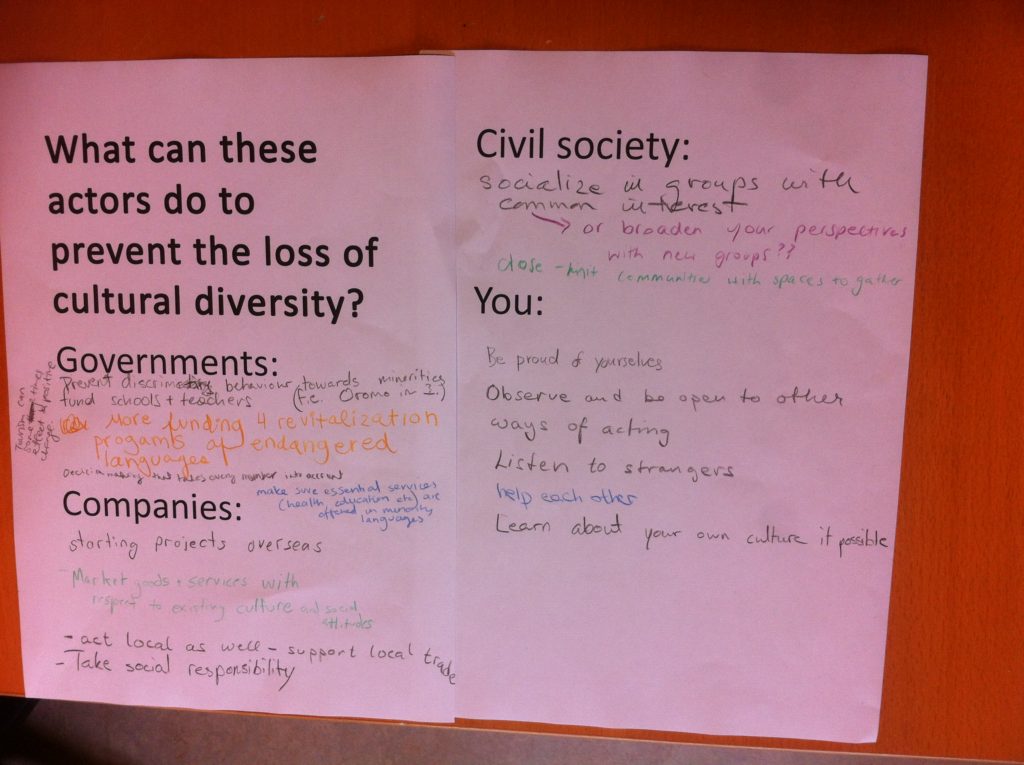 What can these
actors do to
prevent the loss of
cultural diversity?
Governments:
Prevent behaviour towards minorities
fund schools + teachers (i.e. Oromo in
Tourism can
times
effect positive
change.
More funding 4 revitalization
progamts of endangered
languages!
that takes every into account
make sure essential services
(health, education etc) are
offered in minority
languages
Companies:
starting projects overseas
- Market goods + services with
respect to existing culture and social
attitudes
- act local as well - support local trade
- Take social responsibility
Civil society:
socialize in groups with
common interest
→ or broaden your perspectives
with new groups??
close-knit communities with spaces to gather
You:
Be proud of yourselves
Observe and be open to other
ways of acting
Listen to strangers
help each other
Learn about your own culture if possible